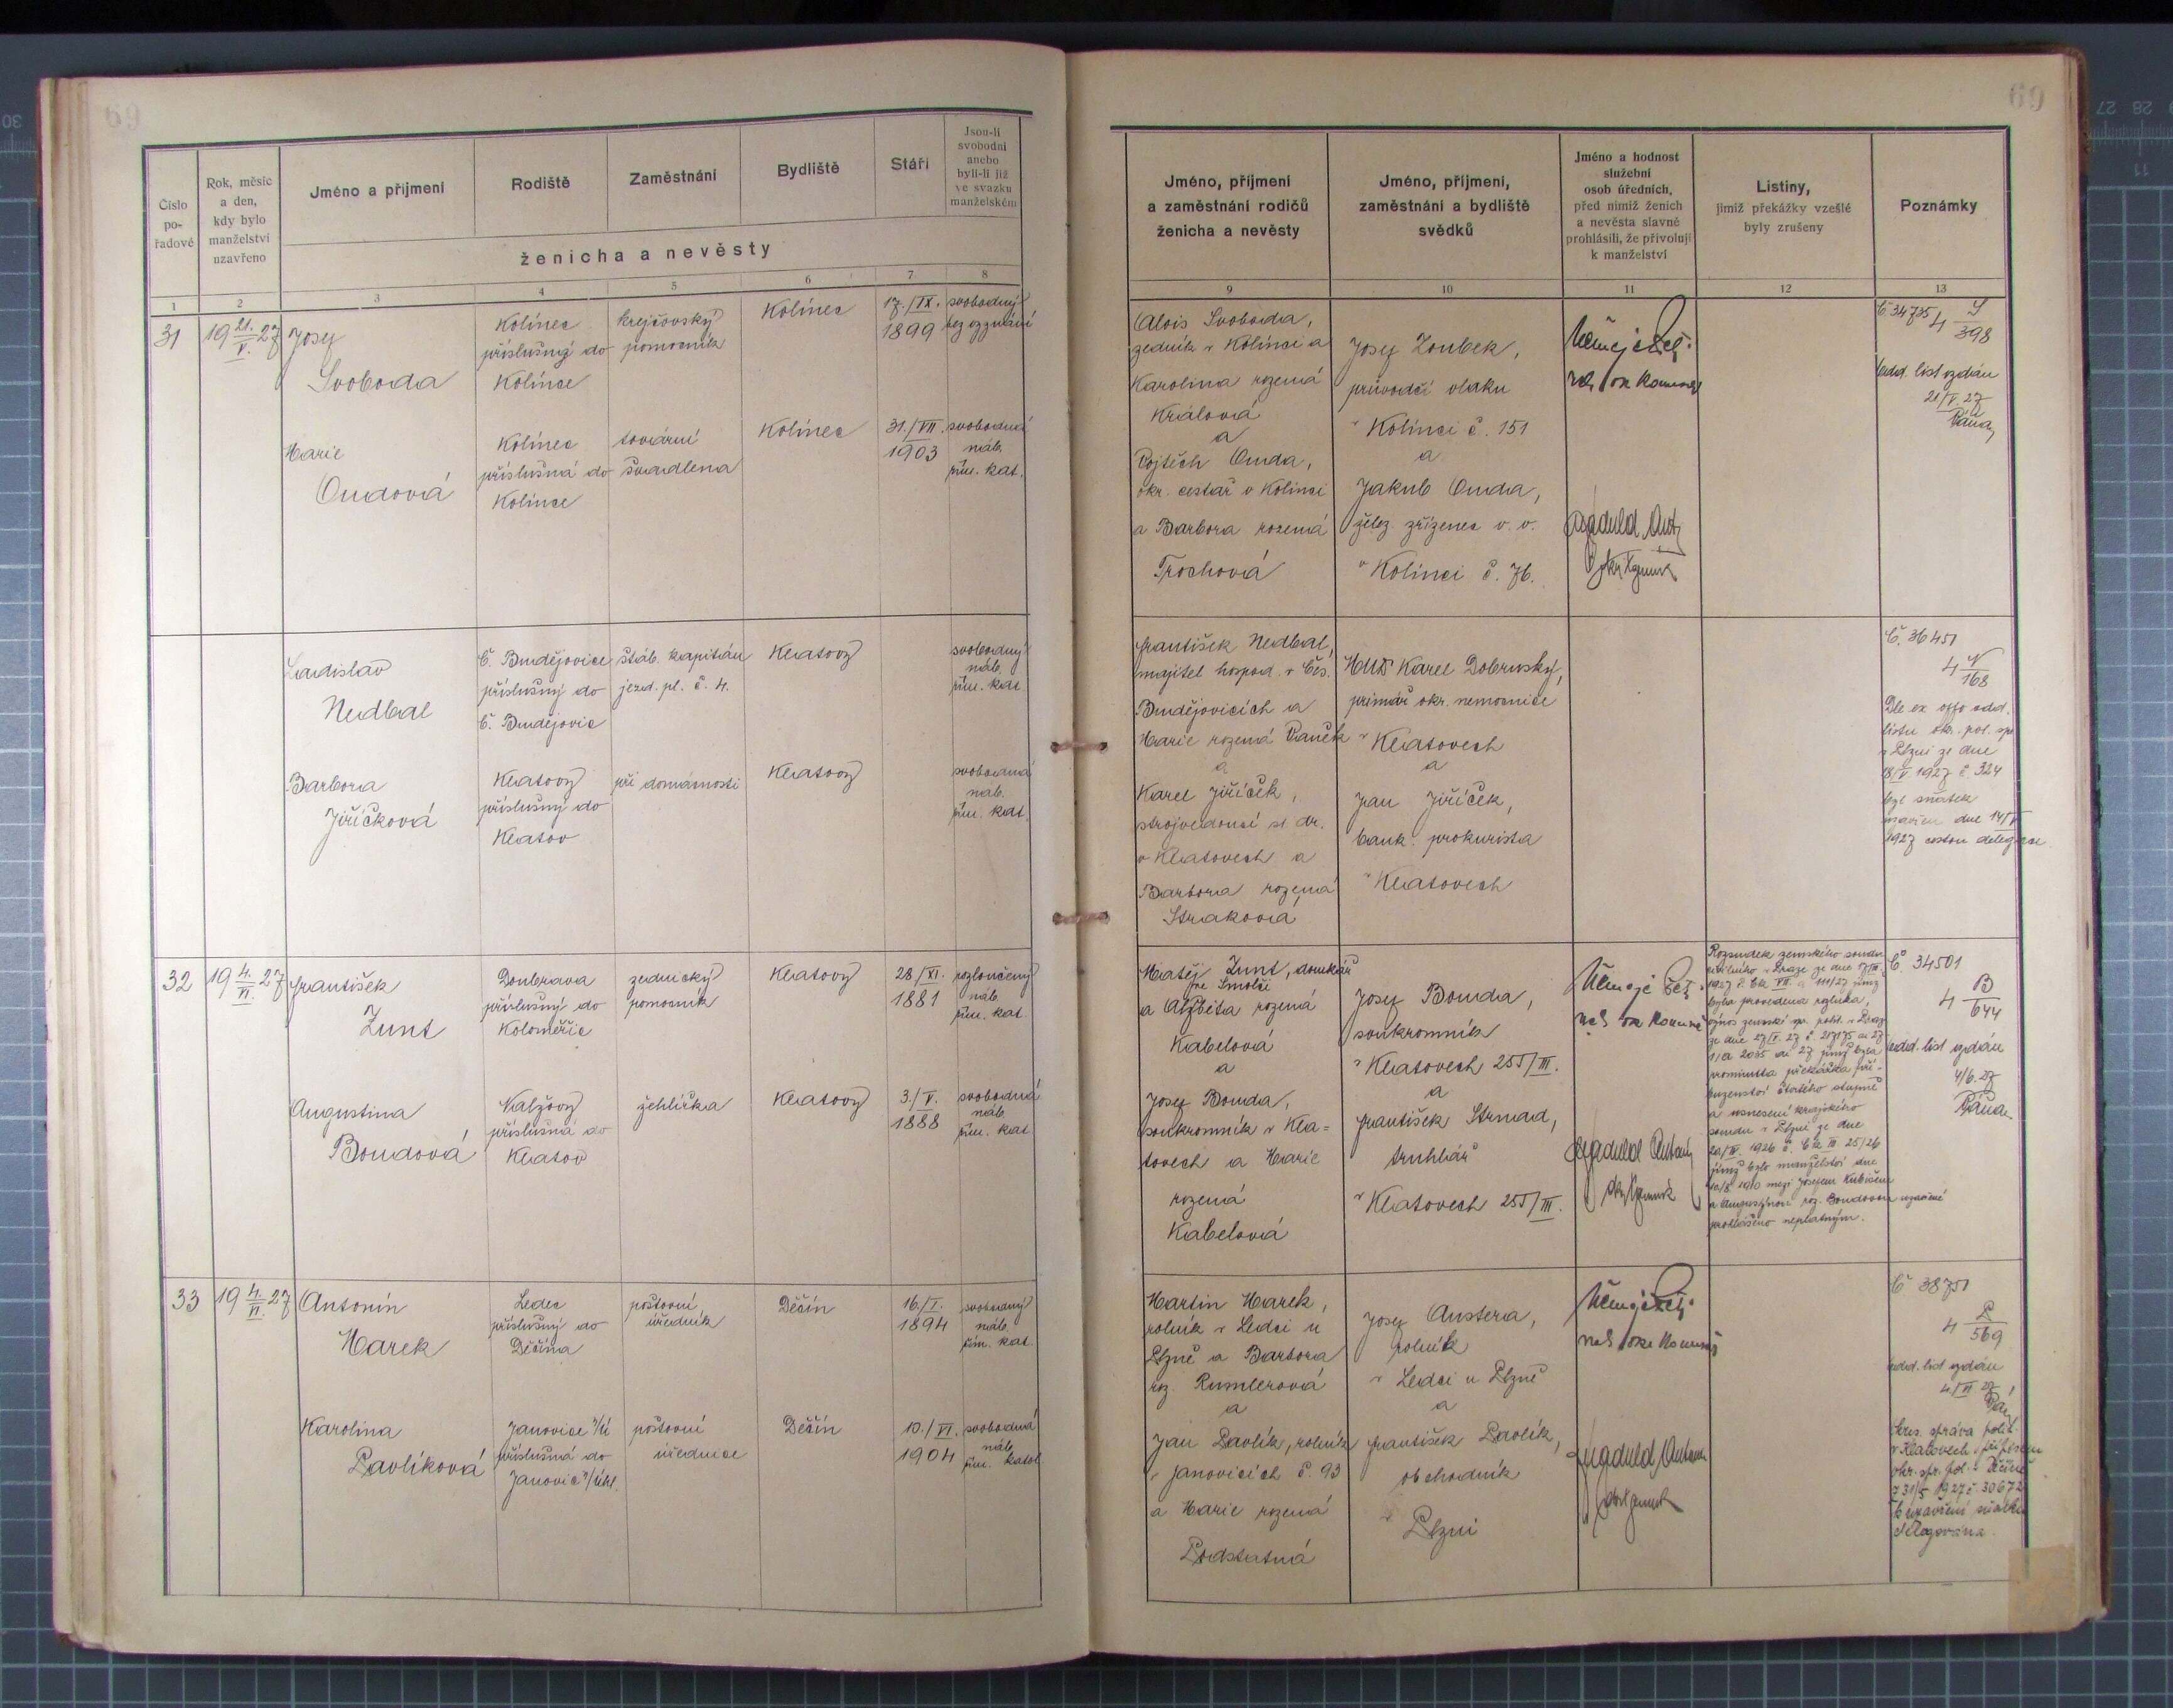 69
Číslo pořadové
Rok, měsíc a den, kdy bylo manželství uzavřeno
Jméno a příjmení
Rodiště
Zaměstnání
Bydliště
Stáří
Json-li svobodni anebo byli-li již ve svazku manželském
ženicha a nevěsty
1 2 3 4 5 6 7 8
31
19 21./V. 27
Josef
Svoboda
Kolínec
příslušný do
Kolince
krejčovský
pomocník
Kolínec
17./IX.
1899
svobodný
bez vyznání
Marie
Oudová
Kolínec
příslušná do
Kolince
tovární
švadlena
Kolínec
31./VII.
1903
svobodná
náb.
řím. kat.
Ladislav
Nedbal
Č. Budějovice
příslušný do
Č. Budějovic
štáb. kapitán
jezd. pl. č. 4.
Klatovy
svobodný
náb.
řím. kat.
Barbora
Jiříčková
Klatovy
příslušný do
Klatov
při domácnosti
Klatovy
svobodná
náb.
řím. kat.
32
19 4./VI. 27
František
Zunt
Doubrava
příslušný do
Koloměřic
zednický
pomocník
Klatovy
28/XI.
1881
rozloučený
náb.
řím. kat.
Augustina
Boudová
Nalžovy
příslušná do
Klatov
žehlířka
Klatovy
3./V.
1888
svobodná
náb.
řím. kat.
33
19 4./VI. 27
Antonín
Marek
Ledec
příslušný do
Děčína
poštovní
úředník
Děčín
16./I.
1894
svobodný
náb.
řím. kat.
Karolina
Pavlíková
Janovice n/Ú
příslušná do
Janovic n/Úhl.
poštovní
úřednice
Děčín
10./VI.
1904
svobodná
náb.
řím. katol.
69
Jméno, příjmení a zaměstnání rodičů ženicha a nevěsty
Jméno, příjmení, zaměstnání a bydliště svědků
Jméno a hodnost služební osob úředních, před nimiž ženich a nevěsta slavně prohlásili, že přivolují k manželství
Listiny, jimiž překážky vzešlé byly zrušeny
Poznámky
9 10 11 12 13
Alois Svoboda,
zedník v Kolínci a
Karolina rozená
Králová
a
Vojtěch Ouda,
okr. cestář v Kolinci
a Barbora rozená
Trochová
Josef Zoubek,
průvodčí vlaku
v Kolínci č. 151
a
Jakub Ouda,
želez. zřízenec v. v.
v Kolínci č. 76.
Č. 34735
4 S/398
odd. list vydán
21/V. 27
František Nedbal,
majitel hospod. v Čes.
Budějovicích a
Marie rozená Vaněk
a
Karel Jiříček,
strojvedoucí st. dr.
v Klatovech a
Barbora rozená
Straková
MUDr Karel Dobruský,
primář okr. nemocnice
v Klatovech
a
Jan Jiříček,
bank. prokurista
v Klatovech
Č. 36451
4 N/168
Dle ex offo odd.
listu okr. pol. sp.
v Plzni ze dne
18/V 1927 č. 324
byl sňatek
uzavřen dne 14/V
1927 cestou delegace
Matěj Zunt, domkář
ve Smolči
a Alžběta rozená
Kabelová
a
Josef Bouda,
soukromník v Kla=
tovech a Marie
rozená
Kabelová
Josef Bouda,
soukromník
v Klatovech 255/III.
a
František Strnad,
truhlář
v Klatovech 255/III.
Rozsudek zemského soudu
civilního v Praze ze dne
byla provedena rozluka,
výnos zemské sp. polit. v Praze
prominuta překážka pří-
buzenství čtvrtého stupně
a usnesení krajského
soudu v Plzni ze dne
jímž bylo manželství dne
1910 mezi Josefem Kubišem
a Augustýnou roz. Boudovou uzavřené
prohlášeno neplatným.
Č. 34501
4 B/644
odd. list vydán
4/6. 27
Martin Marek,
rolník v Ledci u
Plzně a Barbora
roz. Rumlerová
a
Jan Pavlík, rolník
v Janovicích č. 93
a Marie rozená
Podstatná
Josef Austera,
rolník
v Ledci u Plzně
a
František Pavlík,
obchodník
v Plzni
Č 38751
4 P/569
odd. list vydán
4/VI 27
Okres. správa polit.
v Klatovech přípisem
okr. spr. pol. v Děčíně
z 31/5 1927 č. 30672
k uzavření sňatku
delegována.